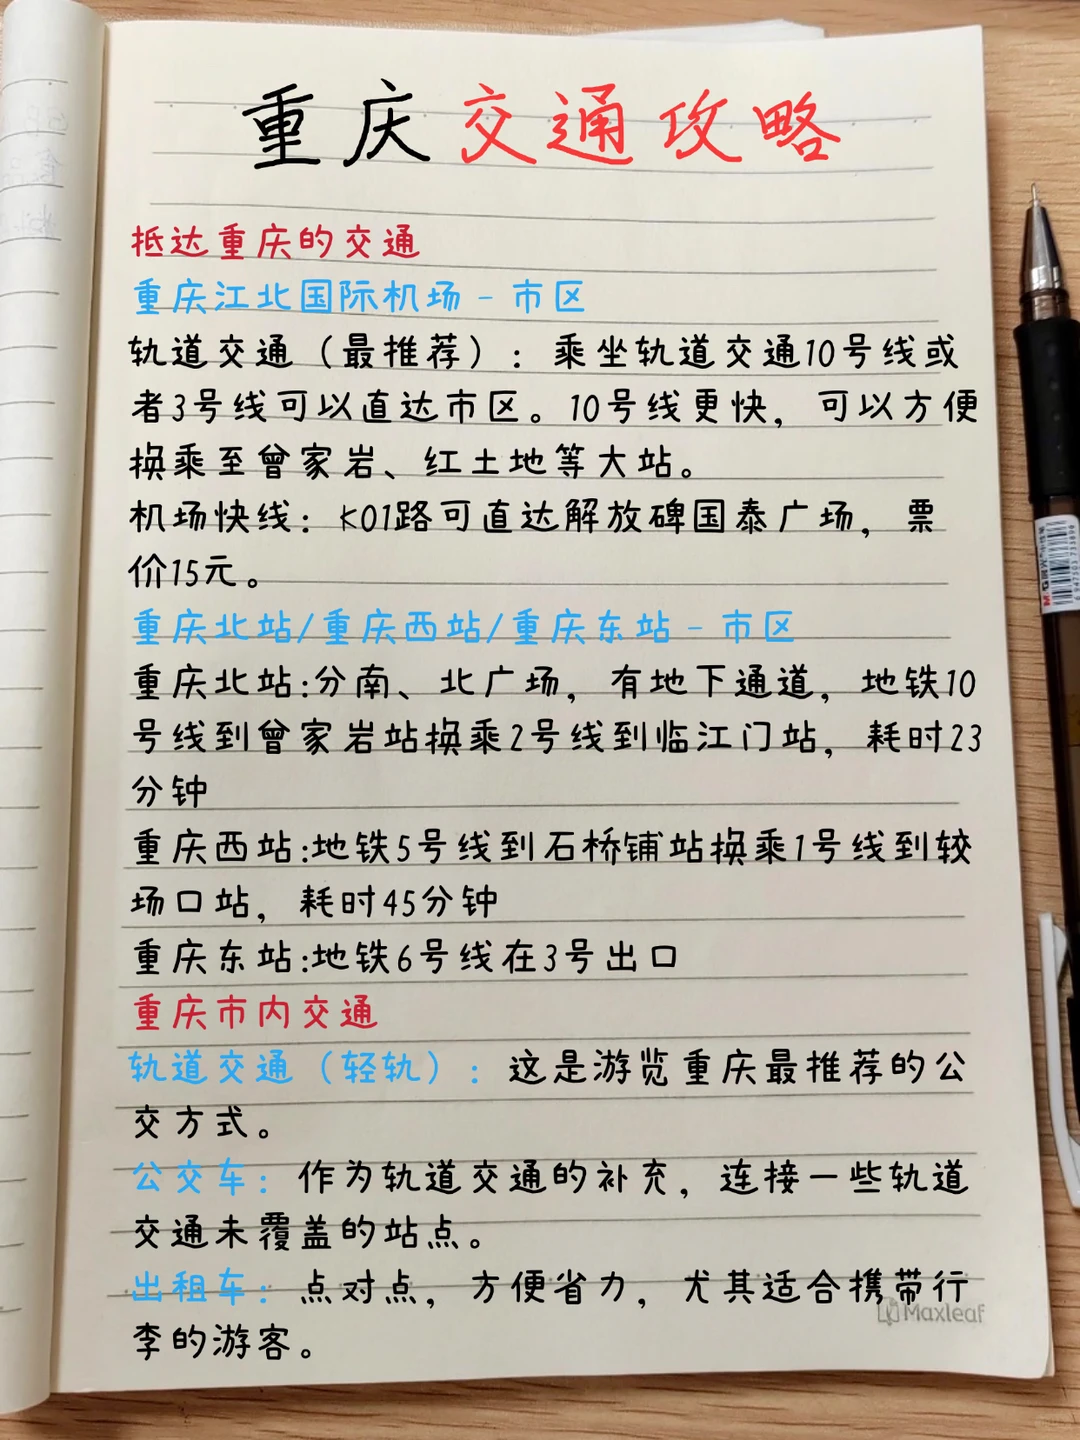 重庆交通攻略
抵达重庆的交通
重庆江北国际机场-市区
轨道交通（最推荐）：乘坐轨道交通10号线或
者3号线可以直达市区。10号线更快，可以方便
换乘至曾家岩、红土地等大站。
机场快线：K01路可直达解放碑国泰广场，票
价15元。
重庆北站/重庆西站/重庆东站-市区
重庆北站:分南、北广场，有地下通道，地铁10
号线到曾家岩站换乘2号线到临江门站，耗时23
分钟
重庆西站:地铁5号线到石桥铺站换乘1号线到较
场口站，耗时45分钟
重庆东站:地铁6号线在3号出口
重庆市内交通
轨道交通（轻轨）：这是游览重庆最推荐的公
交方式。
公交车：作为轨道交通的补充，连接一些轨道
交通未覆盖的站点。
出租车：点对点，方便省力，尤其适合携带行
李的游客。
Maxleaf